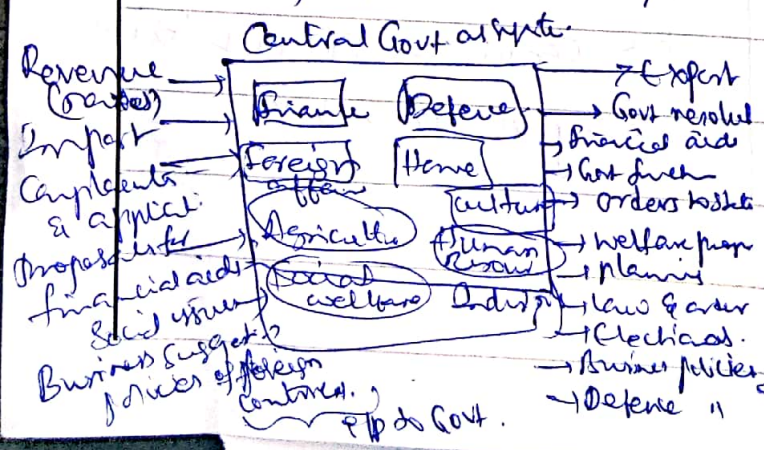 Central Govt as system.
Revenue
(
Import
Complaints
& applicat.
Proposals for
financial aids
Social issues
Business suggest
policies of foreign
countries.
i/p to Govt.
Finance
Defence
Foreign
affair
Home
Culture
Agriculture
Human
Resour
Social
welfare
Indus
Export
Govt resolut
financial aids
Govt
orders to state
welfare prog
planning
Law & order
Elections.
Business policies
Defence "